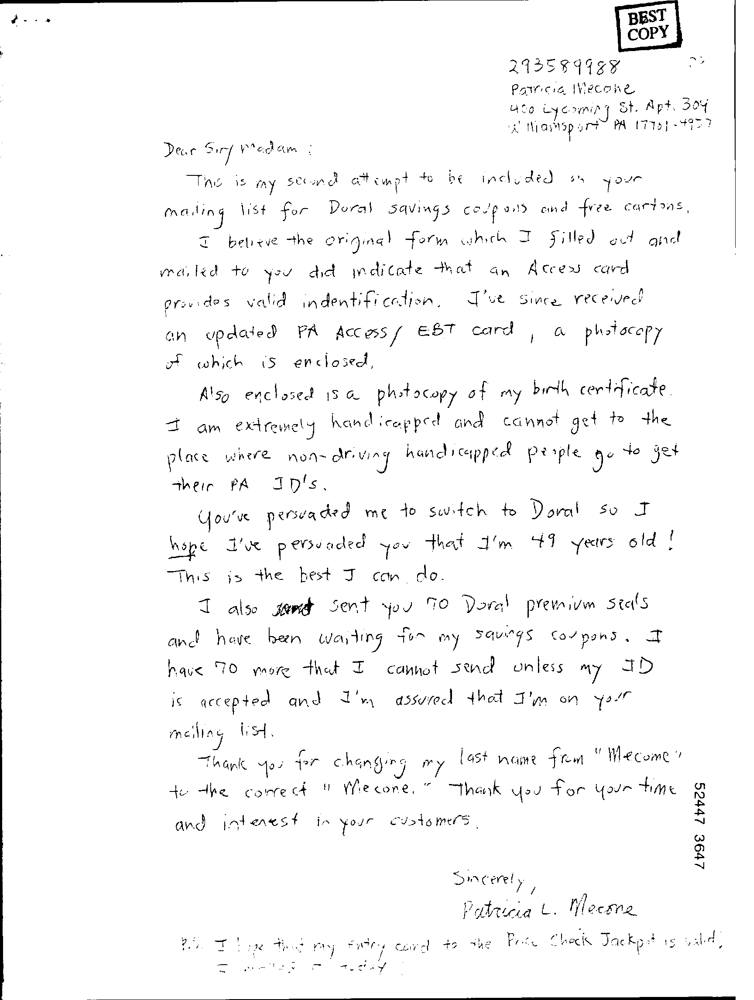 BEST
COPY
293589988
Patricia Mecone
400 Lycoming St. Apt. 304
Williamsport PA 17701-4957
Dear Sir/Madam:
This is my second attempt to be included in your
mailing list for Doral savings coupons and free cartons.
I believe the original form which I filled out and
mailed to you did indicate that an Access card
provides valid indentification. I've since received
an updated PA ACCESS/ EBT card, a photocopy
of which is enclosed.
Also enclosed is a photocopy of my birth certificate.
I am extremely handicapped and cannot get to the
place where non-driving handicapped people go to get
their PA ID's.
You've persuaded me to switch to Doral so I
hope I've persuaded you that I'm 49 years old!
This is the best I can do.
I also sent you 70 Doral premium seals
and have been waiting for my savings coupons. I
have 70 more that I cannot send unless my ID
is accepted and I'm assured that I'm on your
mailing list.
Thank you for changing my last name from "Mecome"
to the correct "Mecone." Thank you for your time
and interest in your customers.
Sincerely,
Patricia L. Mecone
P.S. I hope that my entry card to the Price Check Jackpot is valid.
I mailed it today
52447 3647